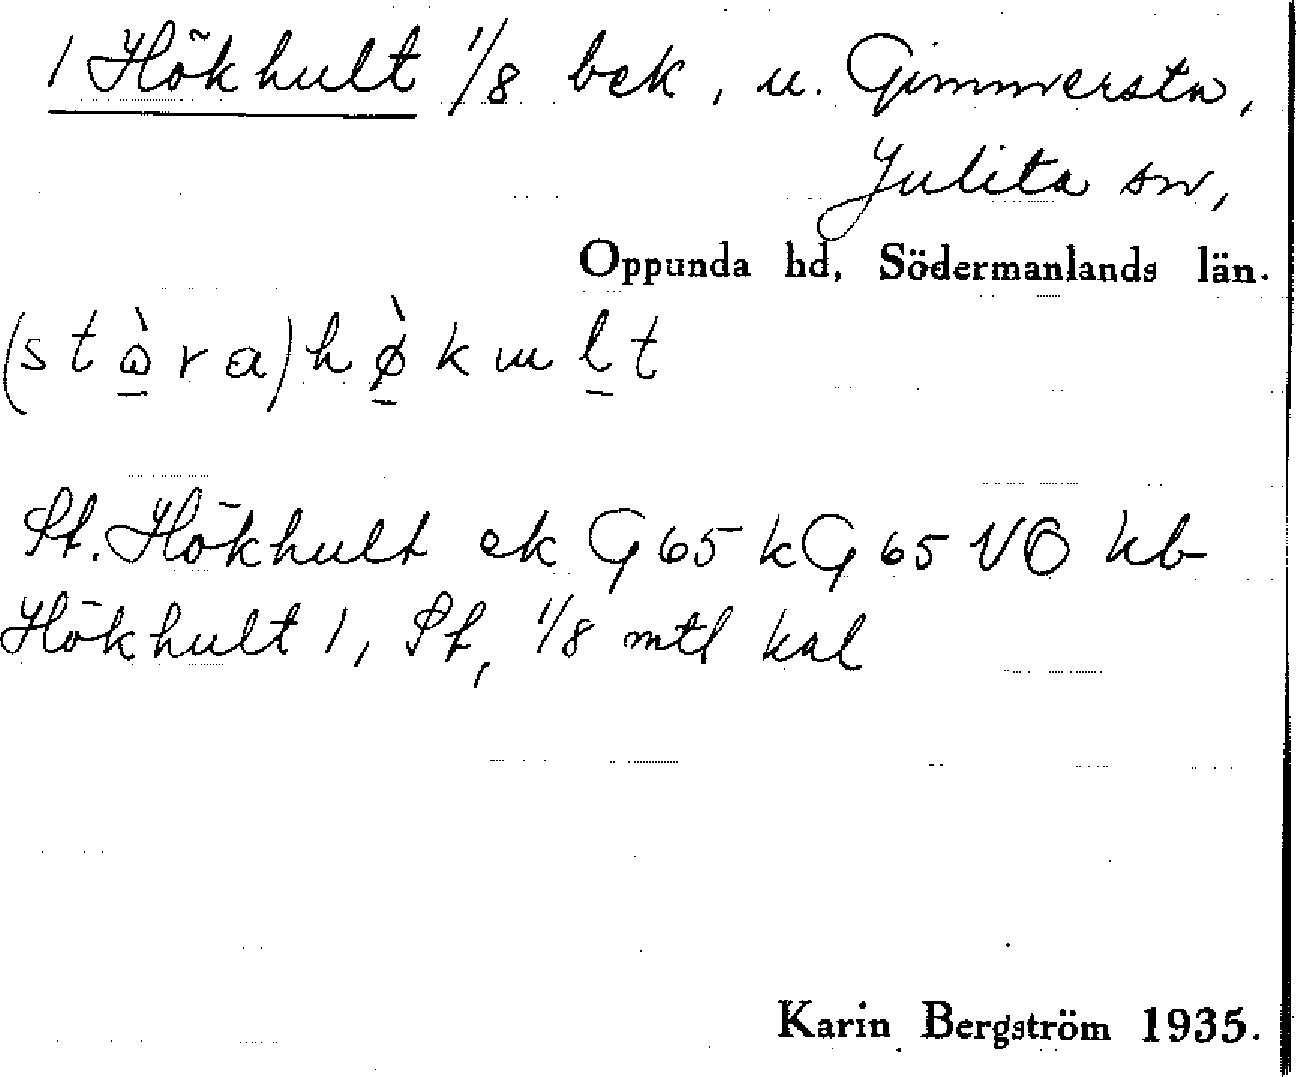 1 Hökhult 1/8 bek, u. Gimmersta,
Julita sn,
Oppunda hd, Södermanlands län.
(stὼra)hø̀kult
St. Hökhult ek G65 kG65 VO kb
Hökhult 1, St, 1/8 mtl kal
Karin Bergström 1935.